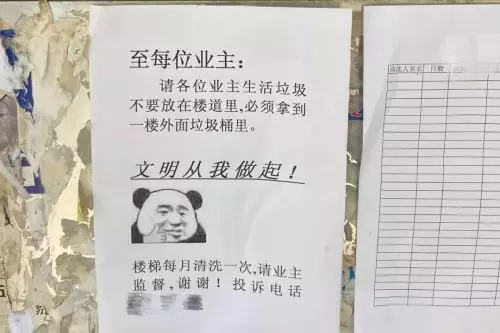 至每位业主：
请各位业主生活垃圾
不要放在楼道里,必须拿到
一楼外面垃圾桶里。
文明从我做起！
楼梯每月清洗一次,请业主
监督,谢谢！投诉电话
清洗人签名 日期